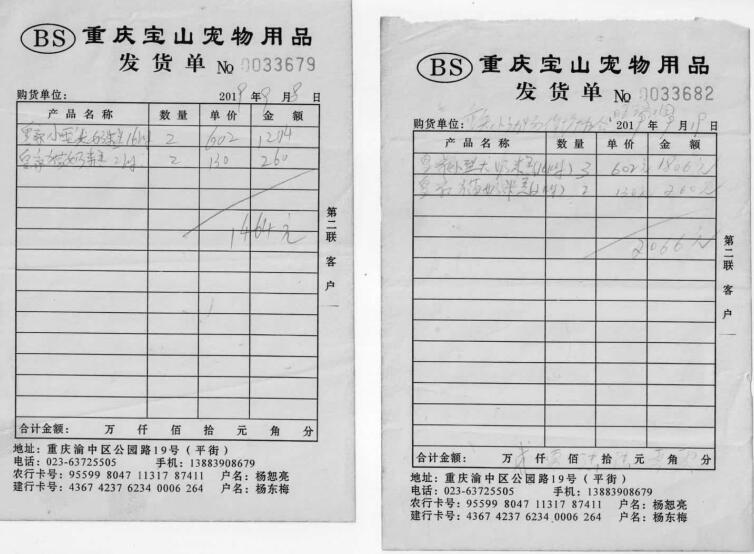 BS 重庆宝山宠物用品
发货单 No 0033679
购货单位： 2019年9月8日
产品名称 数量 单价 金额
皇家小型犬奶糕16kg 2 602 1204
皇家猫奶糕2kg 2 130 260
1464元
第二联 客户
合计金额： 万 仟 佰 拾 元 角 分
地址：重庆渝中区公园路19号（平街）
电话：023-63725505 手机：13883908679
农行卡号：95599 8047 11317 87411 户名：杨恕亮
建行卡号：4367 4237 6234 0006 264 户名：杨东梅
BS 重庆宝山宠物用品
发货单 No 0033682
购货单位： 重庆小动物 协会 2019年9月19日
产品名称 数量 单价 金额
皇家小型犬奶糕(16kg) 3 602元 1806元
皇家猫奶糕(2kg) 2 130元 260元
2066元
第二联 客户
合计金额： 万 仟 佰 拾 元 角 分
地址：重庆渝中区公园路19号（平街）
电话：023-63725505 手机：13883908679
农行卡号：95599 8047 11317 87411 户名：杨恕亮
建行卡号：4367 4237 6234 0006 264 户名：杨东梅